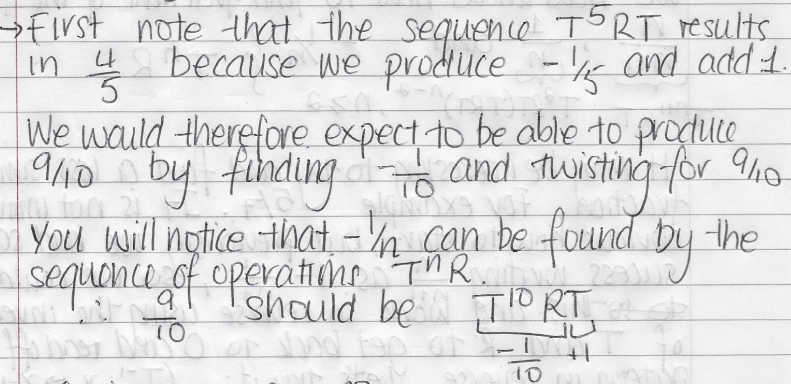 → First note that the sequence T⁵RT results
in 4/5 because we produce -1/5 and add 1.
We would therefore expect to be able to produce
9/10 by finding -1/10 and twisting for 9/10
You will notice that -1/n can be found by the
sequence of operations TⁿR.
∴ 9/10 should be T¹⁰RT
-1/10 +1